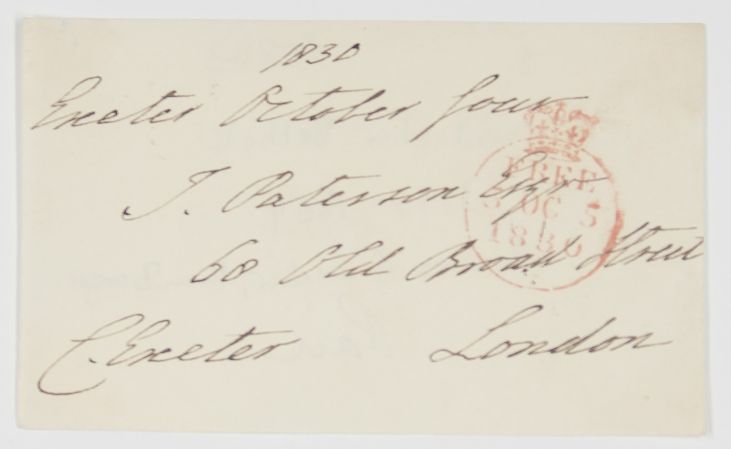 1830
Exeter October four
J. Paterson Esqr
68 Old Broad Street
C. Exeter London
FREE
OC 5
1830